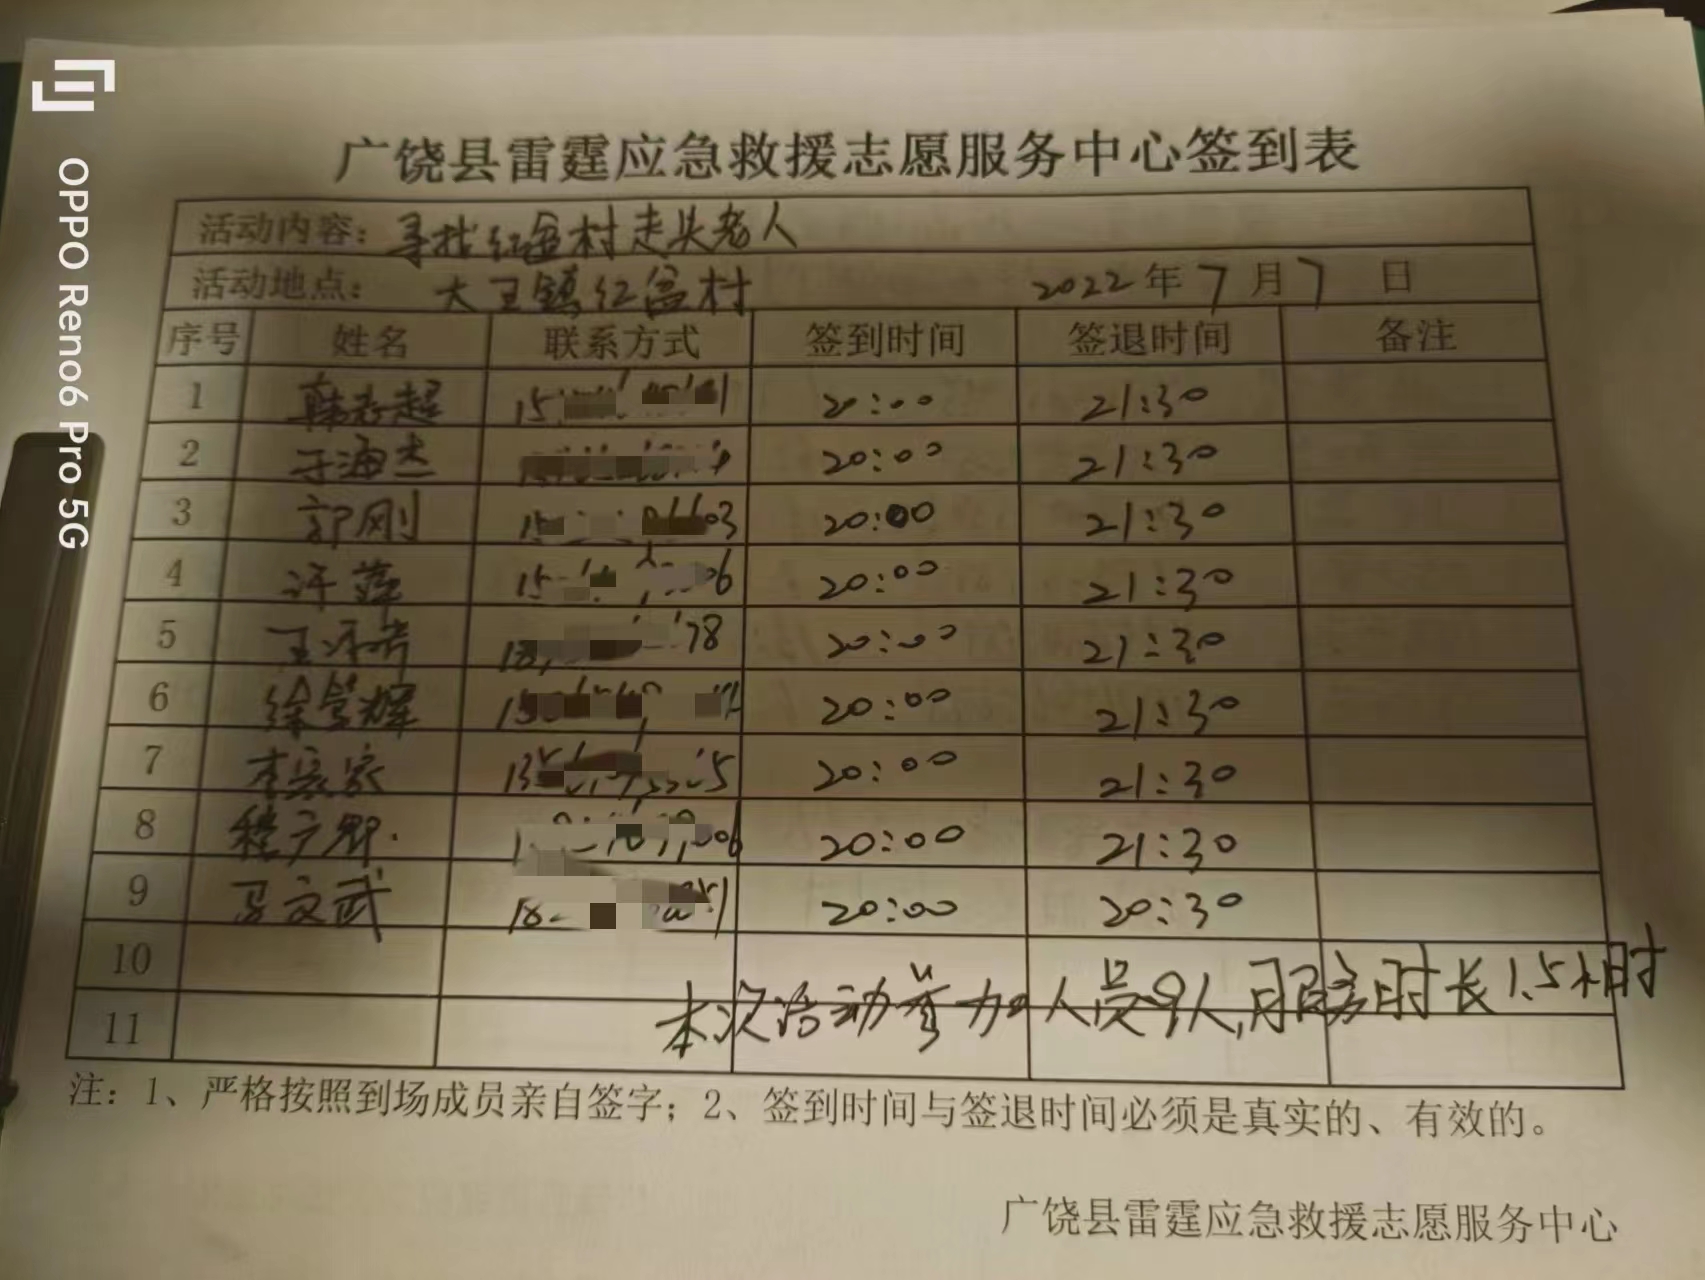 OPPO Reno6 Pro 5G
广饶县雷霆应急救援志愿服务中心签到表
活动内容：寻找红盆村走失老人
活动地点：大王镇红盆村 2022年7月7日
序号 姓名 联系方式 签到时间 签退时间 备注
1 韩志超 20:00 21:30
2 于海杰 20:00 21:30
3 郭刚 20:00 21:30
4 许莲 20:00 21:30
5 20:00 21:30
6 20:00 21:30
7 20:00 21:30
8 20:00 21:30
9 马文武 20:00 20:30
10
本次活动参加人员9人,服务时长1.5小时
11
注：1、严格按照到场成员亲自签字；2、签到时间与签退时间必须是真实的、有效的。
广饶县雷霆应急救援志愿服务中心